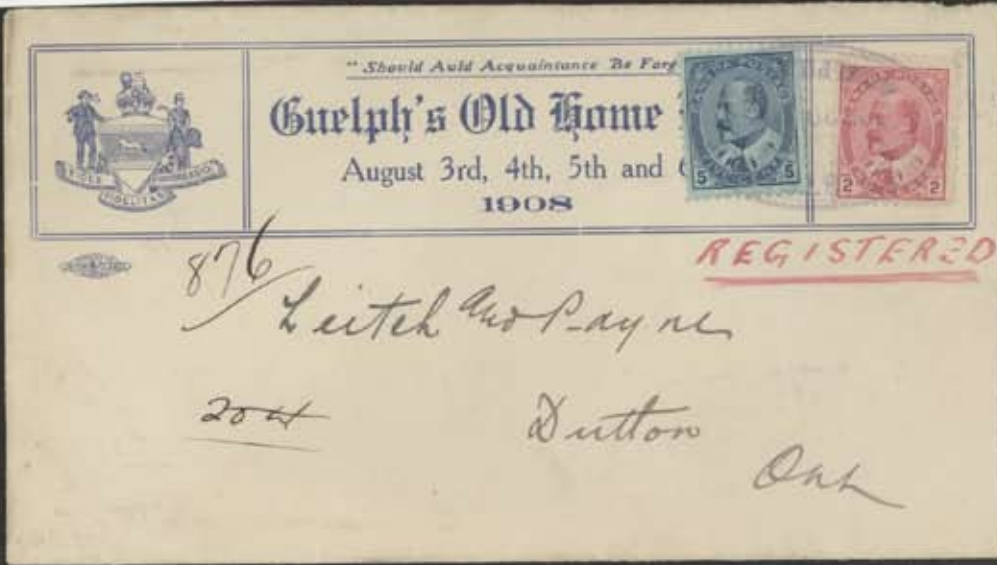 "Should Auld Acquaintance Be Forg
Guelph's Old Home
August 3rd, 4th, 5th and 6
1908
5 5
2 2
FIDELITAS
REGISTERED
876
Leitch and Payne
204
Dutton
Ont